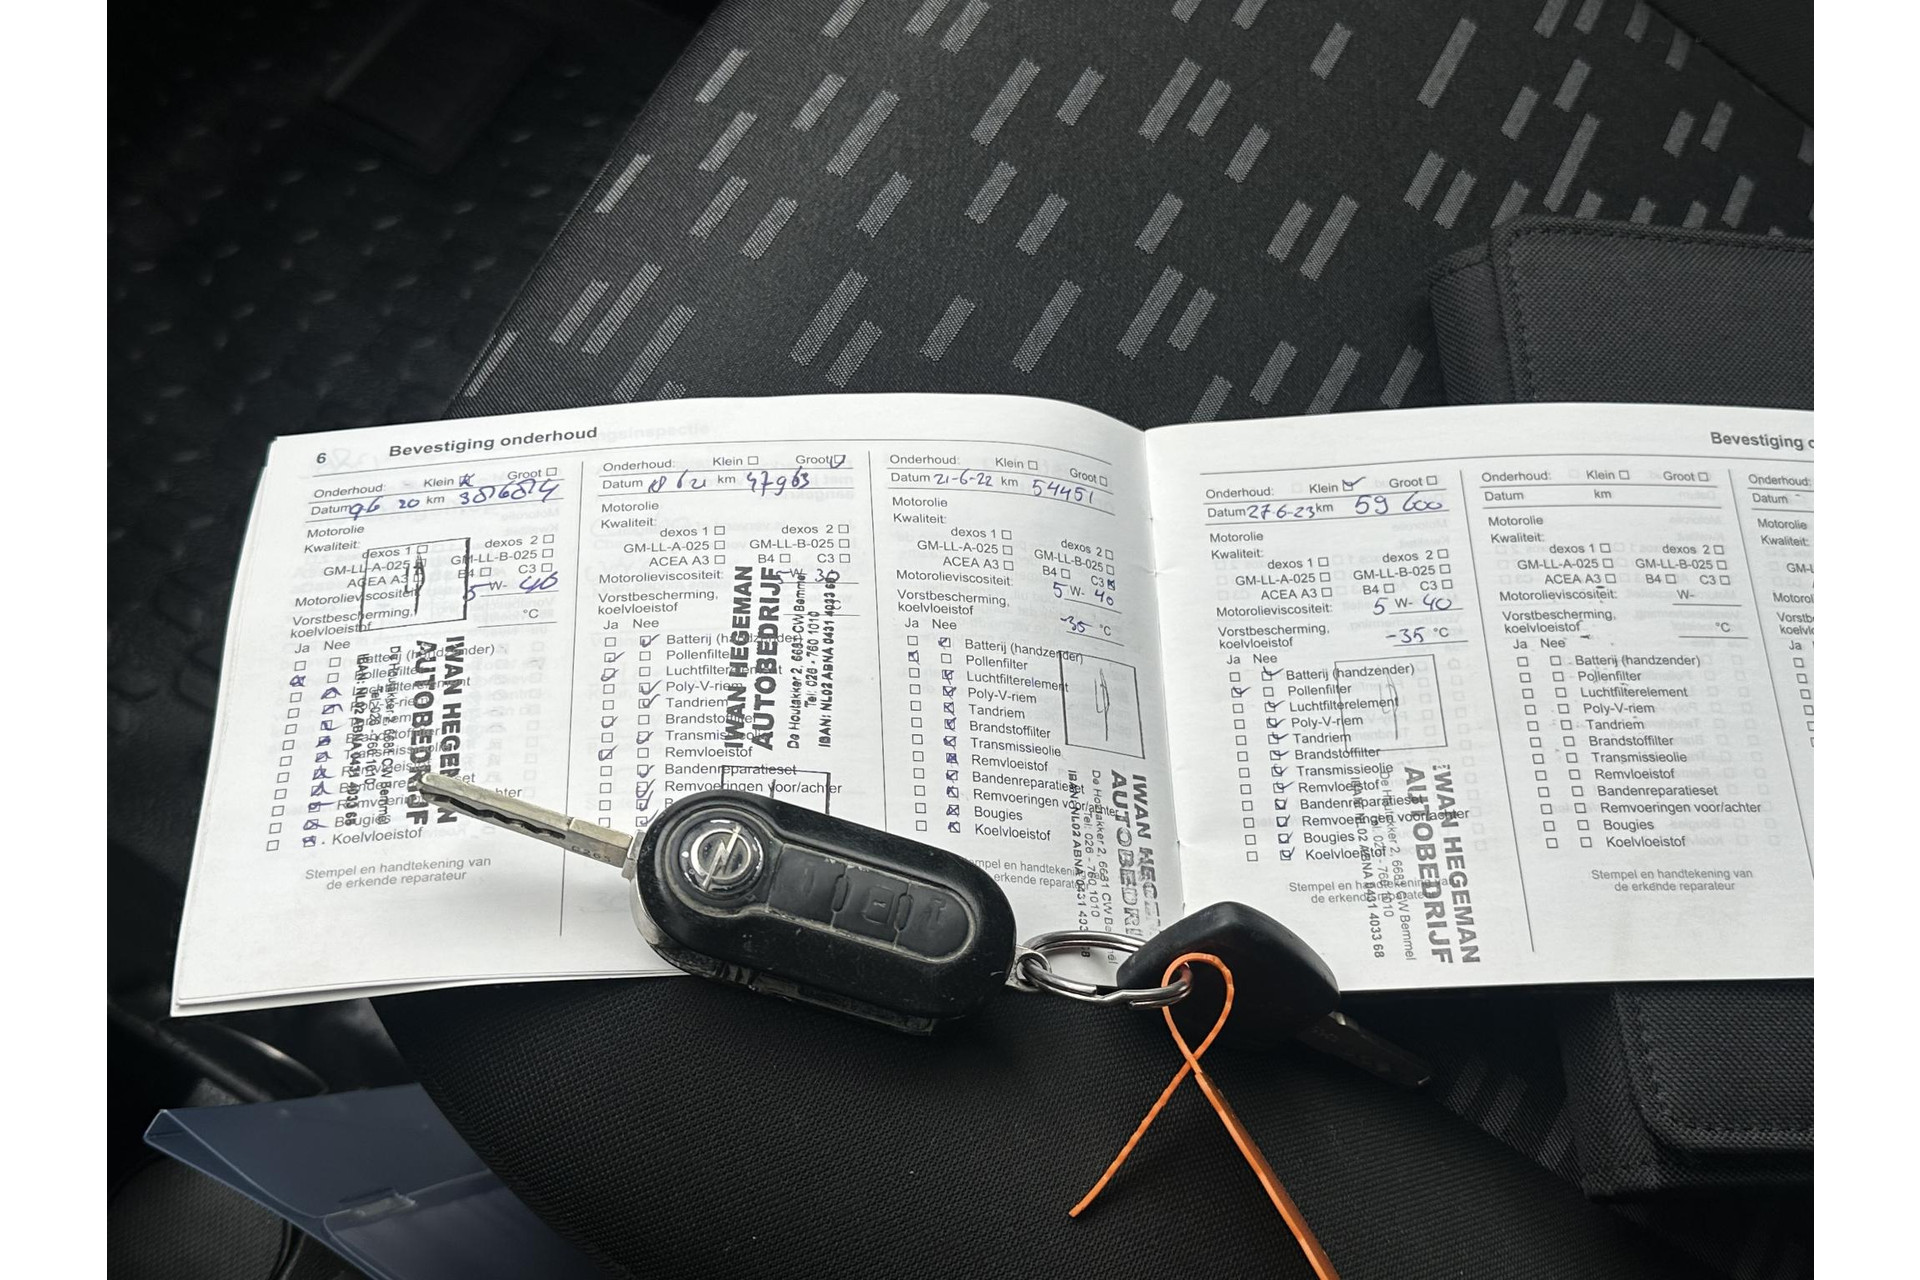 6 Bevestiging onderhoud
Onderhoud: Klein Groot
km
Motorolie
Kwaliteit:
dexos 1 dexos 2
GM-LL-A-025 GM-LL-B-025
ACEA A3 B4 C3
Motorolieviscositeit 5 W- 40
Vorstbescherming,
koelvloeistof °C
Ja Nee
Bougies
Koelvloeistof
IWAN HEGEMAN
AUTOBEDRIJF
Stempel en handtekening van
de erkende reparateur
Onderhoud: Klein Groot
Datum 18 6 21 km 47963
Motorolie
Kwaliteit:
dexos 1 dexos 2
GM-LL-A-025 GM-LL-B-025
ACEA A3 B4 C3
Motorolieviscositeit: 5 W- 30
Vorstbescherming,
koelvloeistof
Ja Nee
Batterij (handzender)
Pollenfilter
Luchtfilterelement
Poly-V-riem
Tandriem
Brandstoffilter
Transmissieolie
Remvloeistof
Bandenreparatieset
Remvoeringen voor/achter
IWAN HEGEMAN
AUTOBEDRIJF
De Houtakker 2, 6681 CW Bemmel
Tel: 026 - 760 1010
IBAN: NL02 ABNA 0431 4033 68
Onderhoud: Klein Groot
Datum 21-6-22 km 54451
Motorolie
Kwaliteit:
dexos 1 dexos 2
GM-LL-A-025 GM-LL-B-025
ACEA A3 B4 C3
Motorolieviscositeit: 5 W- 40
Vorstbescherming,
koelvloeistof -35 °C
Ja Nee
Batterij (handzender)
Pollenfilter
Luchtfilterelement
Poly-V-riem
Tandriem
Brandstoffilter
Transmissieolie
Remvloeistof
Bandenreparatieset
Remvoeringen voor/achter
Bougies
Koelvloeistof
AUTOBEDRIJ
De Houtakker 2, 6681 CW
Tel: 026 - 760 1010
Bevestiging
Onderhoud: Klein Groot
Datum 27-6-23 km 59 600
Motorolie
Kwaliteit:
dexos 1 dexos 2
GM-LL-A-025 GM-LL-B-025
ACEA A3 B4 C3
Motorolieviscositeit: 5 W- 40
Vorstbescherming,
koelvloeistof -35 °C
Ja Nee
Batterij (handzender)
Pollenfilter
Luchtfilterelement
Poly-V-riem
Tandriem
Brandstoffilter
Transmissieolie
Remvloeistof
Bandenreparatieset
Remvoeringen voor/achter
Bougies
Koelvloeistof
Stempel en handtekening van
IWAN HEGEMAN
AUTOBEDRIJF
Onderhoud: Klein Groot
Datum km
Motorolie
Kwaliteit:
dexos 1 dexos 2
GM-LL-A-025 GM-LL-B-025
ACEA A3 B4 C3
Motorolieviscositeit: W-
Vorstbescherming,
koelvloeistof °C
Ja Nee
Batterij (handzender)
Pollenfilter
Luchtfilterelement
Poly-V-riem
Tandriem
Brandstoffilter
Transmissieolie
Remvloeistof
Bandenreparatieset
Remvoeringen voor/achter
Bougies
Koelvloeistof
Stempel en handtekening van
de erkende reparateur
Onderhoud:
Datum
Motorolie
Kwaliteit:
Ja